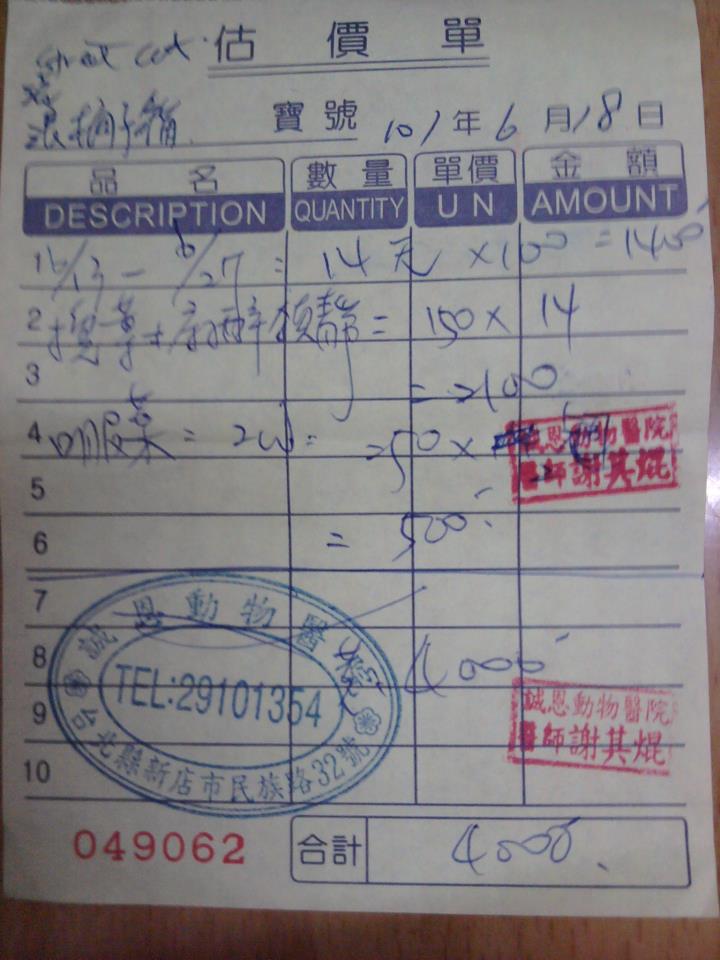 street cat 估價單
浪
寶號 101年6月18日
品名 數量 單價 金額
DESCRIPTION QUANTITY U N AMOUNT
1 6/13 - 6/27 : 14天 ×100 = 1400
2 = 150 × 14
3 = 2100
4 口服藥 = 2w = 250 ×
誠恩動物醫院
醫師謝其焜
5
6 = 500
7
誠恩動物醫院
TEL:29101354
台北縣新店市民族路32號
8 4000
誠恩動物醫院
醫師謝其焜
9
10
049062 合計 4000